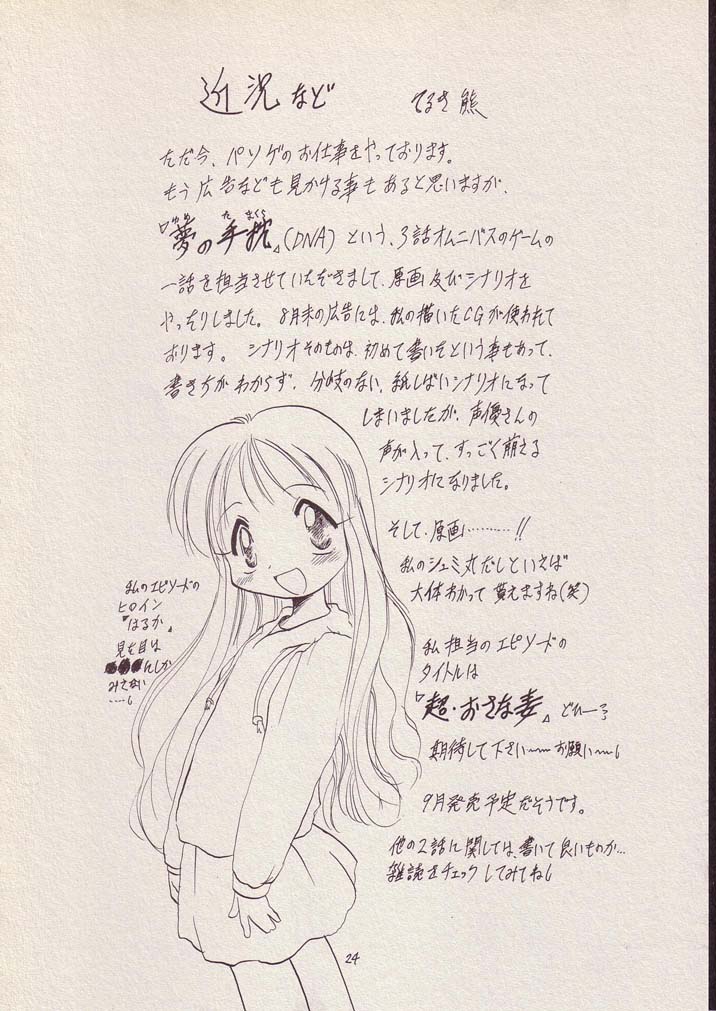 近況など
てるき熊
ただ今、パソゲのお仕事をやっております。
もう広告なども見かける事もあると思いますが、
『夢の手枕』(DNA)という、3話オムニバスのゲームの
ゆめ た まくら
一話を担当させていただきまして、原画及びシナリオを
やったりしました。8月末の広告には、私の描いたCGが使われて
おります。シナリオそのものは、初めて書いたという事もあって、
書き方がわからず、分岐のない、紙しばいシナリオになって
しまいましたが、声優さんの
声が入って、すっごく萌える
シナリオになりました。
そして、原画………!!
私のシュミ丸だしといえば
大体わかって貰えますね(笑)
私のエピソードの
ヒロイン
『はるか』
見た目は
にしか
みえない
……。
私担当のエピソードの
タイトルは
『超・おさな妻』どひーっ
期待して下さい〜〜お願い〜。
9月発売予定だそうです。
他の2話に関しては、書いて良いものか…
雑誌をチェックしてみてね。
24